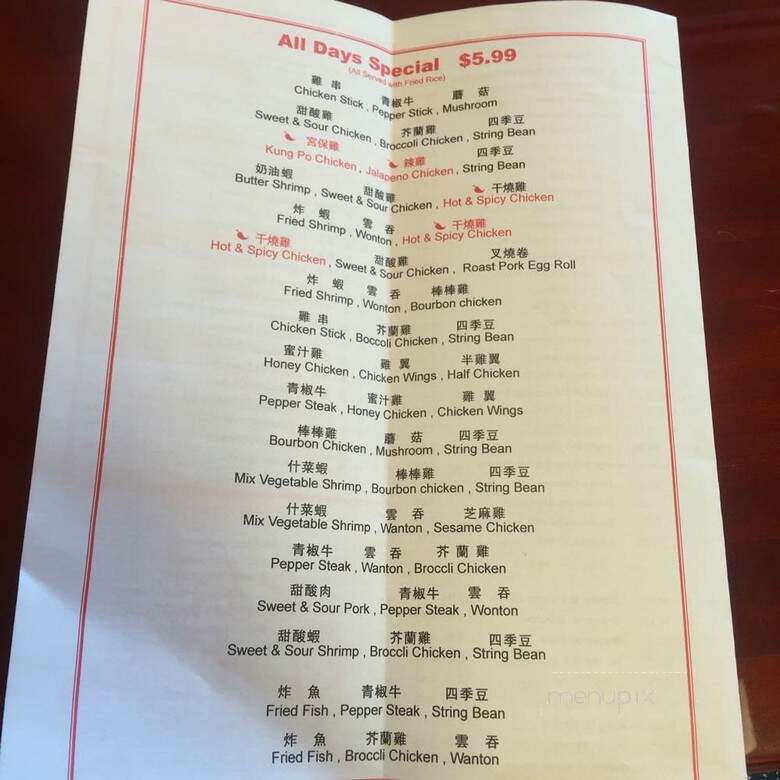 All Days Special $5.99
(All Served with Fried Rice)
雞 串 青椒牛 蘑 菇
Chicken Stick , Pepper Stick , Mushroom
甜酸雞 芥蘭雞 四季豆
Sweet & Sour Chicken , Broccoli Chicken , String Bean
宮保雞 辣雞 四季豆
Kung Po Chicken , Jalapeno Chicken , String Bean
奶油蝦 甜酸雞 干燒雞
Butter Shrimp , Sweet & Sour Chicken , Hot & Spicy Chicken
炸 蝦 雲 吞 干燒雞
Fried Shrimp , Wonton , Hot & Spicy Chicken
干燒雞 甜酸雞 叉燒卷
Hot & Spicy Chicken , Sweet & Sour Chicken , Roast Pork Egg Roll
炸 蝦 雲 吞 棒棒雞
Fried Shrimp , Wonton , Bourbon chicken
雞 串 芥蘭雞 四季豆
Chicken Stick , Boccoli Chicken , String Bean
蜜汁雞 雞 翼 半雞翼
Honey Chicken , Chicken Wings , Half Chicken
青椒牛 蜜汁雞 雞 翼
Pepper Steak , Honey Chicken , Chicken Wings
棒棒雞 蘑 菇 四季豆
Bourbon Chicken , Mushroom , String Bean
什菜蝦 棒棒雞 四季豆
Mix Vegetable Shrimp , Bourbon chicken , String Bean
什菜蝦 雲 吞 芝麻雞
Mix Vegetable Shrimp , Wanton , Sesame Chicken
青椒牛 雲 吞 芥 蘭 雞
Pepper Steak , Wanton , Broccli Chicken
甜酸肉 青椒牛 雲 吞
Sweet & Sour Pork , Pepper Steak , Wonton
甜酸蝦 芥蘭雞 四季豆
Sweet & Sour Shrimp , Broccli Chicken , String Bean
炸 魚 青椒牛 四季豆
Fried Fish , Pepper Steak , String Bean
炸 魚 芥蘭雞 雲 吞
Fried Fish , Broccli Chicken , Wanton
menupix